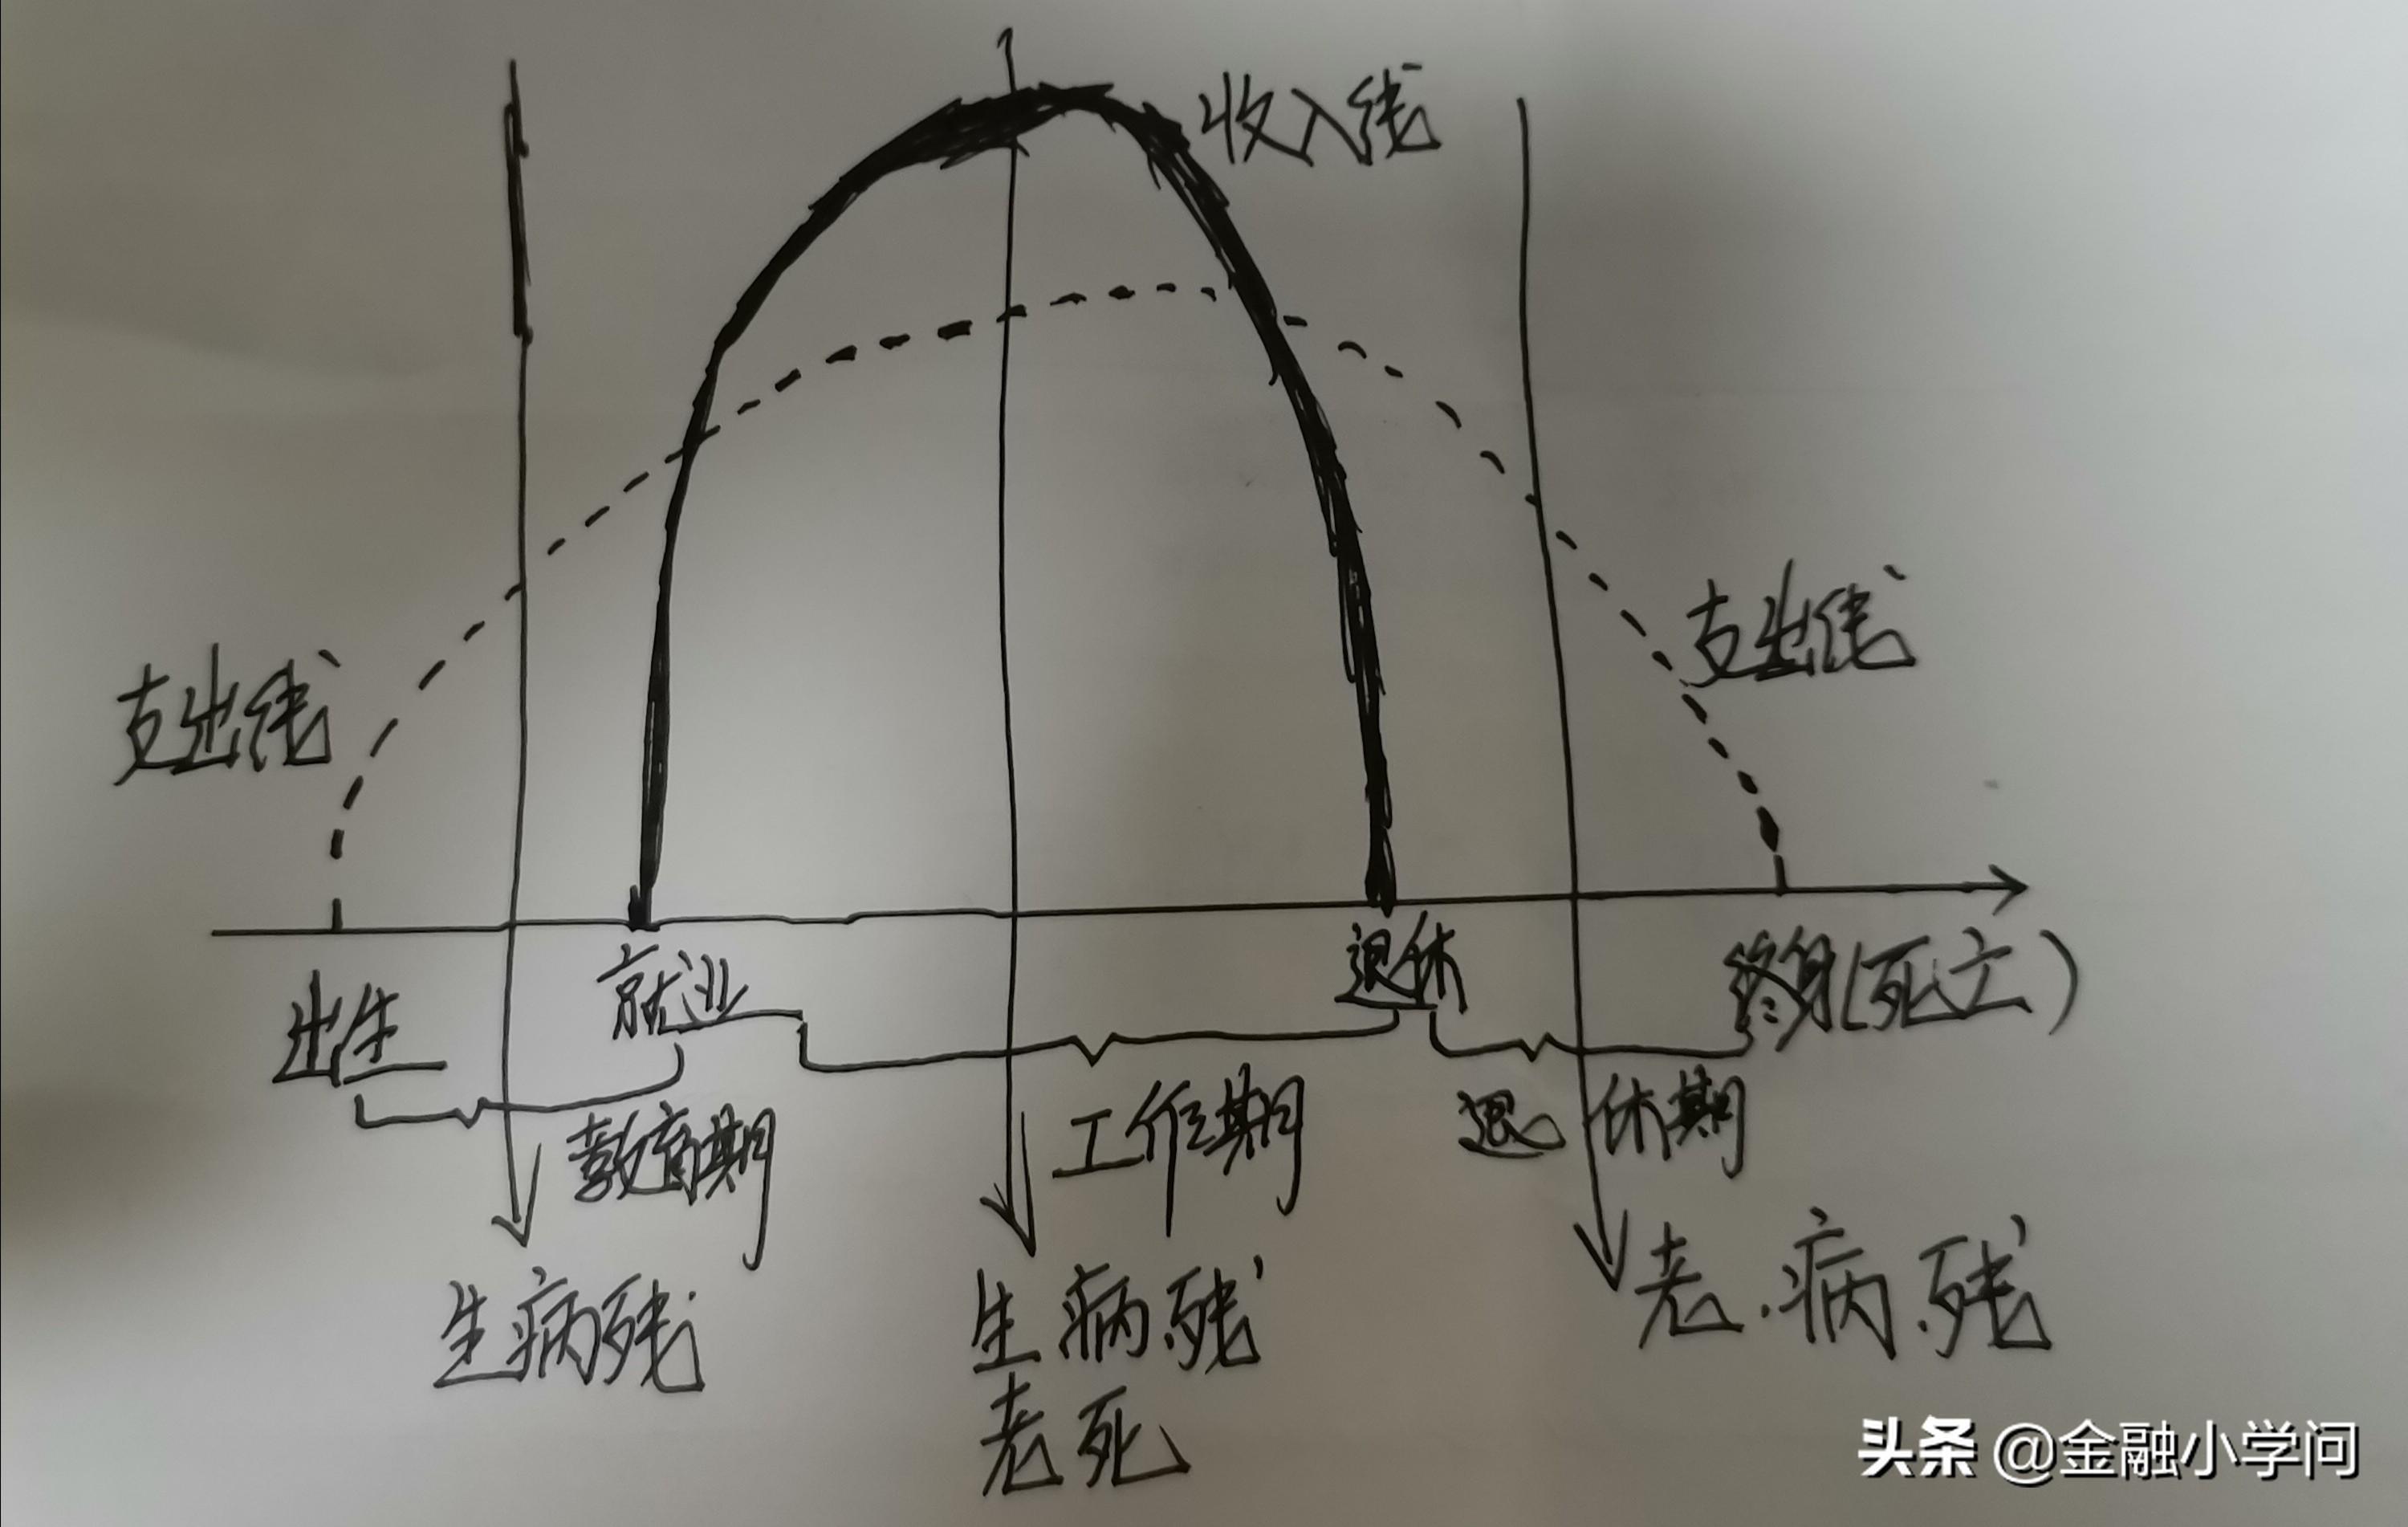 收入线
支出线
支出线
出生
就业
退休
终身(死亡)
教育期
工作期
退休期
生病残
生病.残
老死
老.病.残
头条 @金融小学问